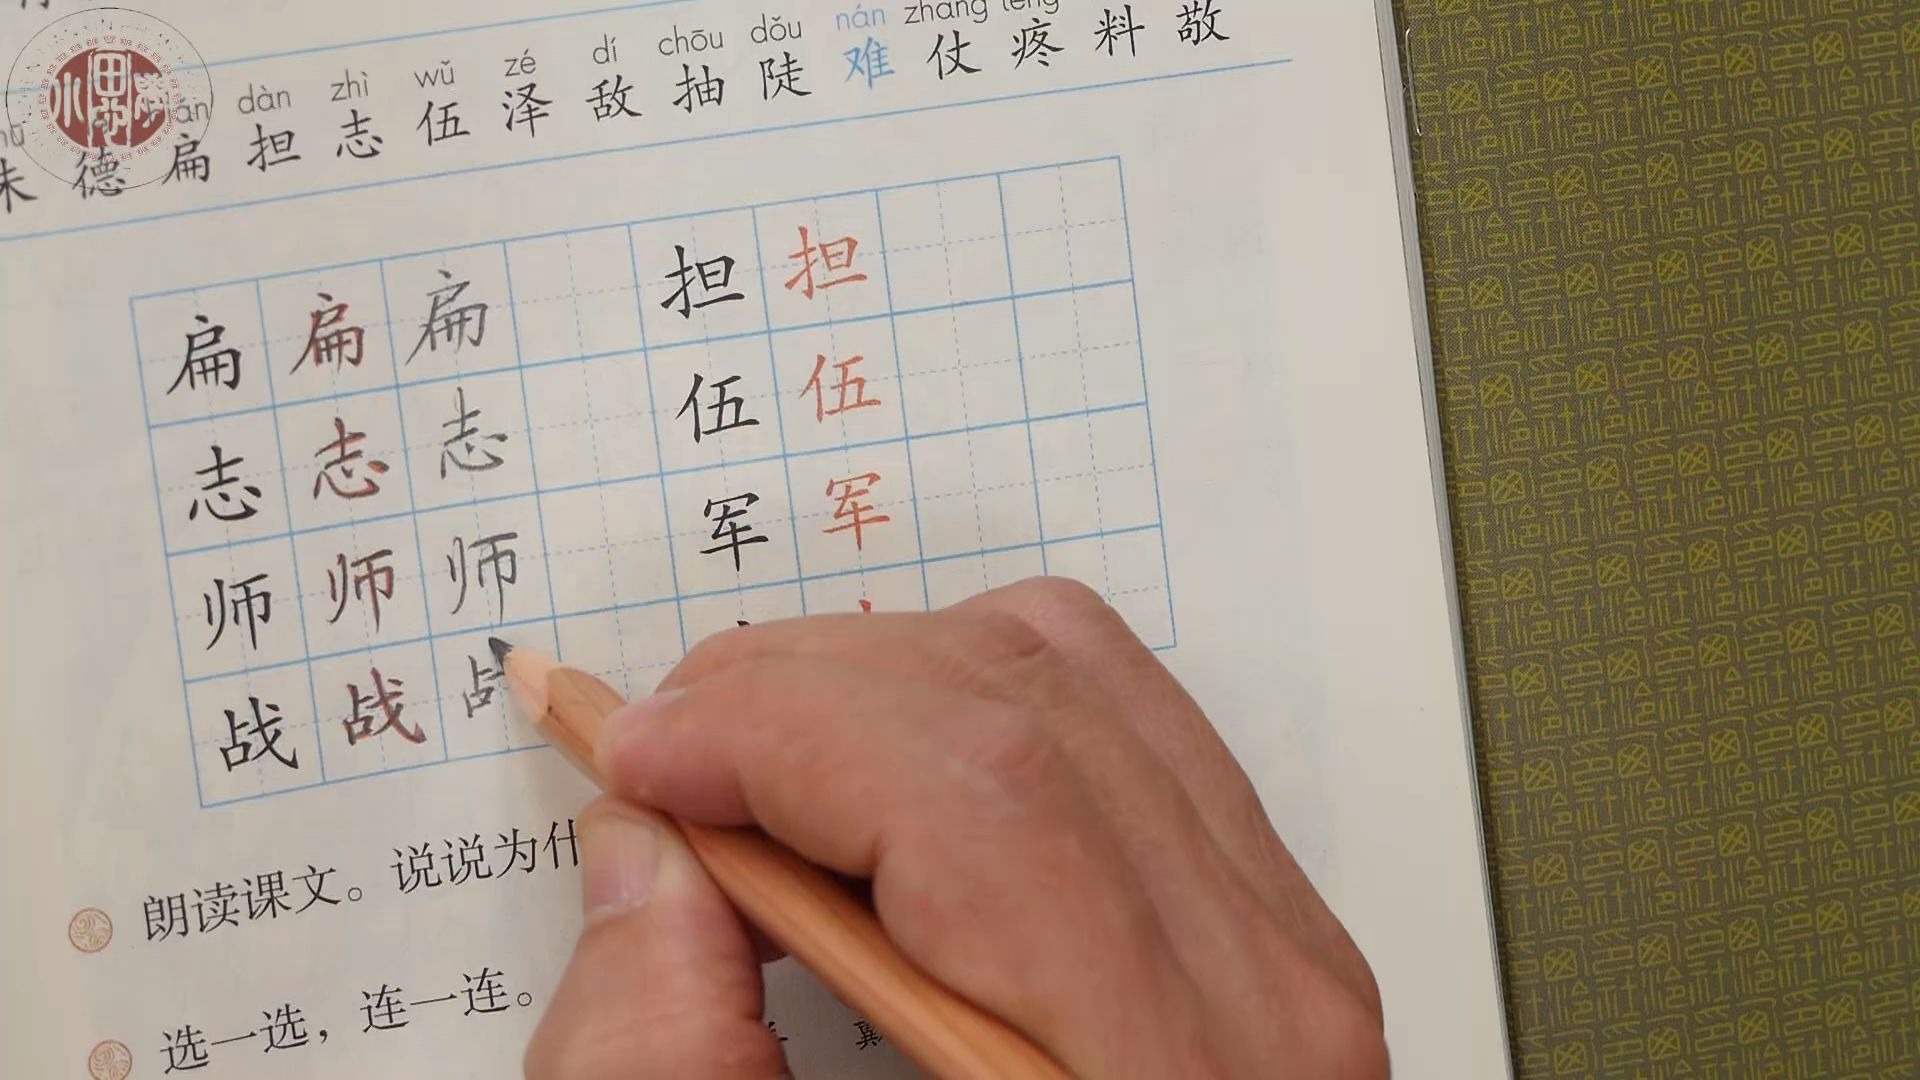 dàn zhì wǔ zé dí chōu dǒu nán zhàng téng
德 扁 担 志 伍 泽 敌 抽 陡 难 仗 疼 料 敬
扁 扁 扁 担 担
志 志 志 伍 伍
师 师 师 军 军
战 战 占
朗读课文。说说为什
选一选，连一连。